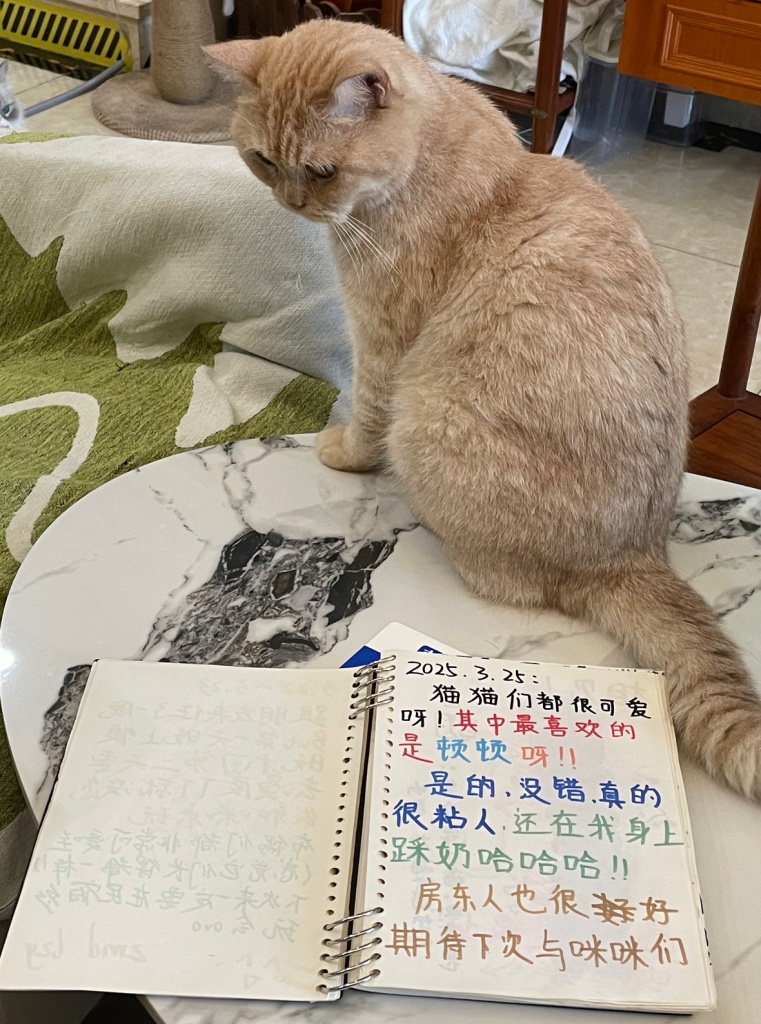 2025.3.25:
猫猫们都很可爱
呀!其中最喜欢的
是顿顿呀!!
是的,没错,真的
很粘人,还在我身上
踩奶哈哈哈!!
房东人也很好
期待下次与咪咪们